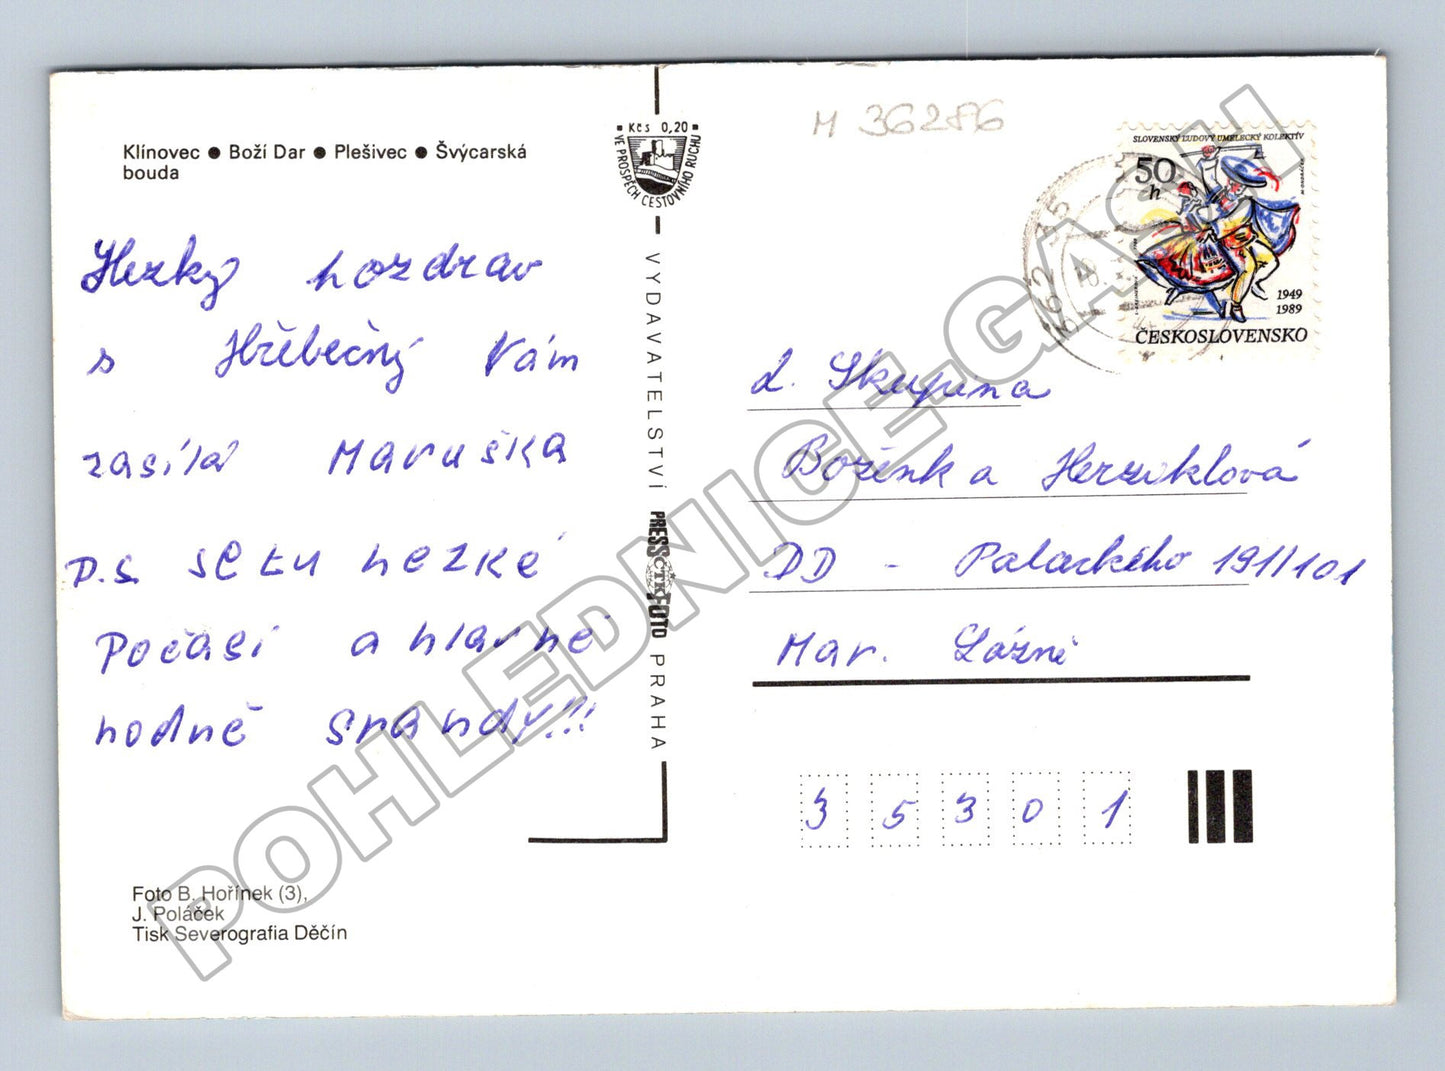 Klínovec ● Boží Dar ● Plešivec ● Švýcarská
bouda
Hezký pozdrav
s Hřebečný Vám
zasílá Maruška
P.S. je tu hezké
Počasí a hlavně
hodně srandy!!!
Foto B. Hořínek (3),
J. Poláček
Tisk Severografia Děčín
Kčs 0,20
VE PROSPĚCH CESTOVNÍHO RUCHU
VYDAVATELSTVÍ
PRESSFOTO
ČTK
PRAHA
M 36286
362 35
SLOVENSKÝ ĽUDOVÝ UMELECKÝ KOLEKTÍV
50
h
1949
1989
ČESKOSLOVENSKO
2. Skupina
Boženka Herziklová
DD - Palackého 191/101
Mar. Lázně
35301
POHLEDNICE-GASH